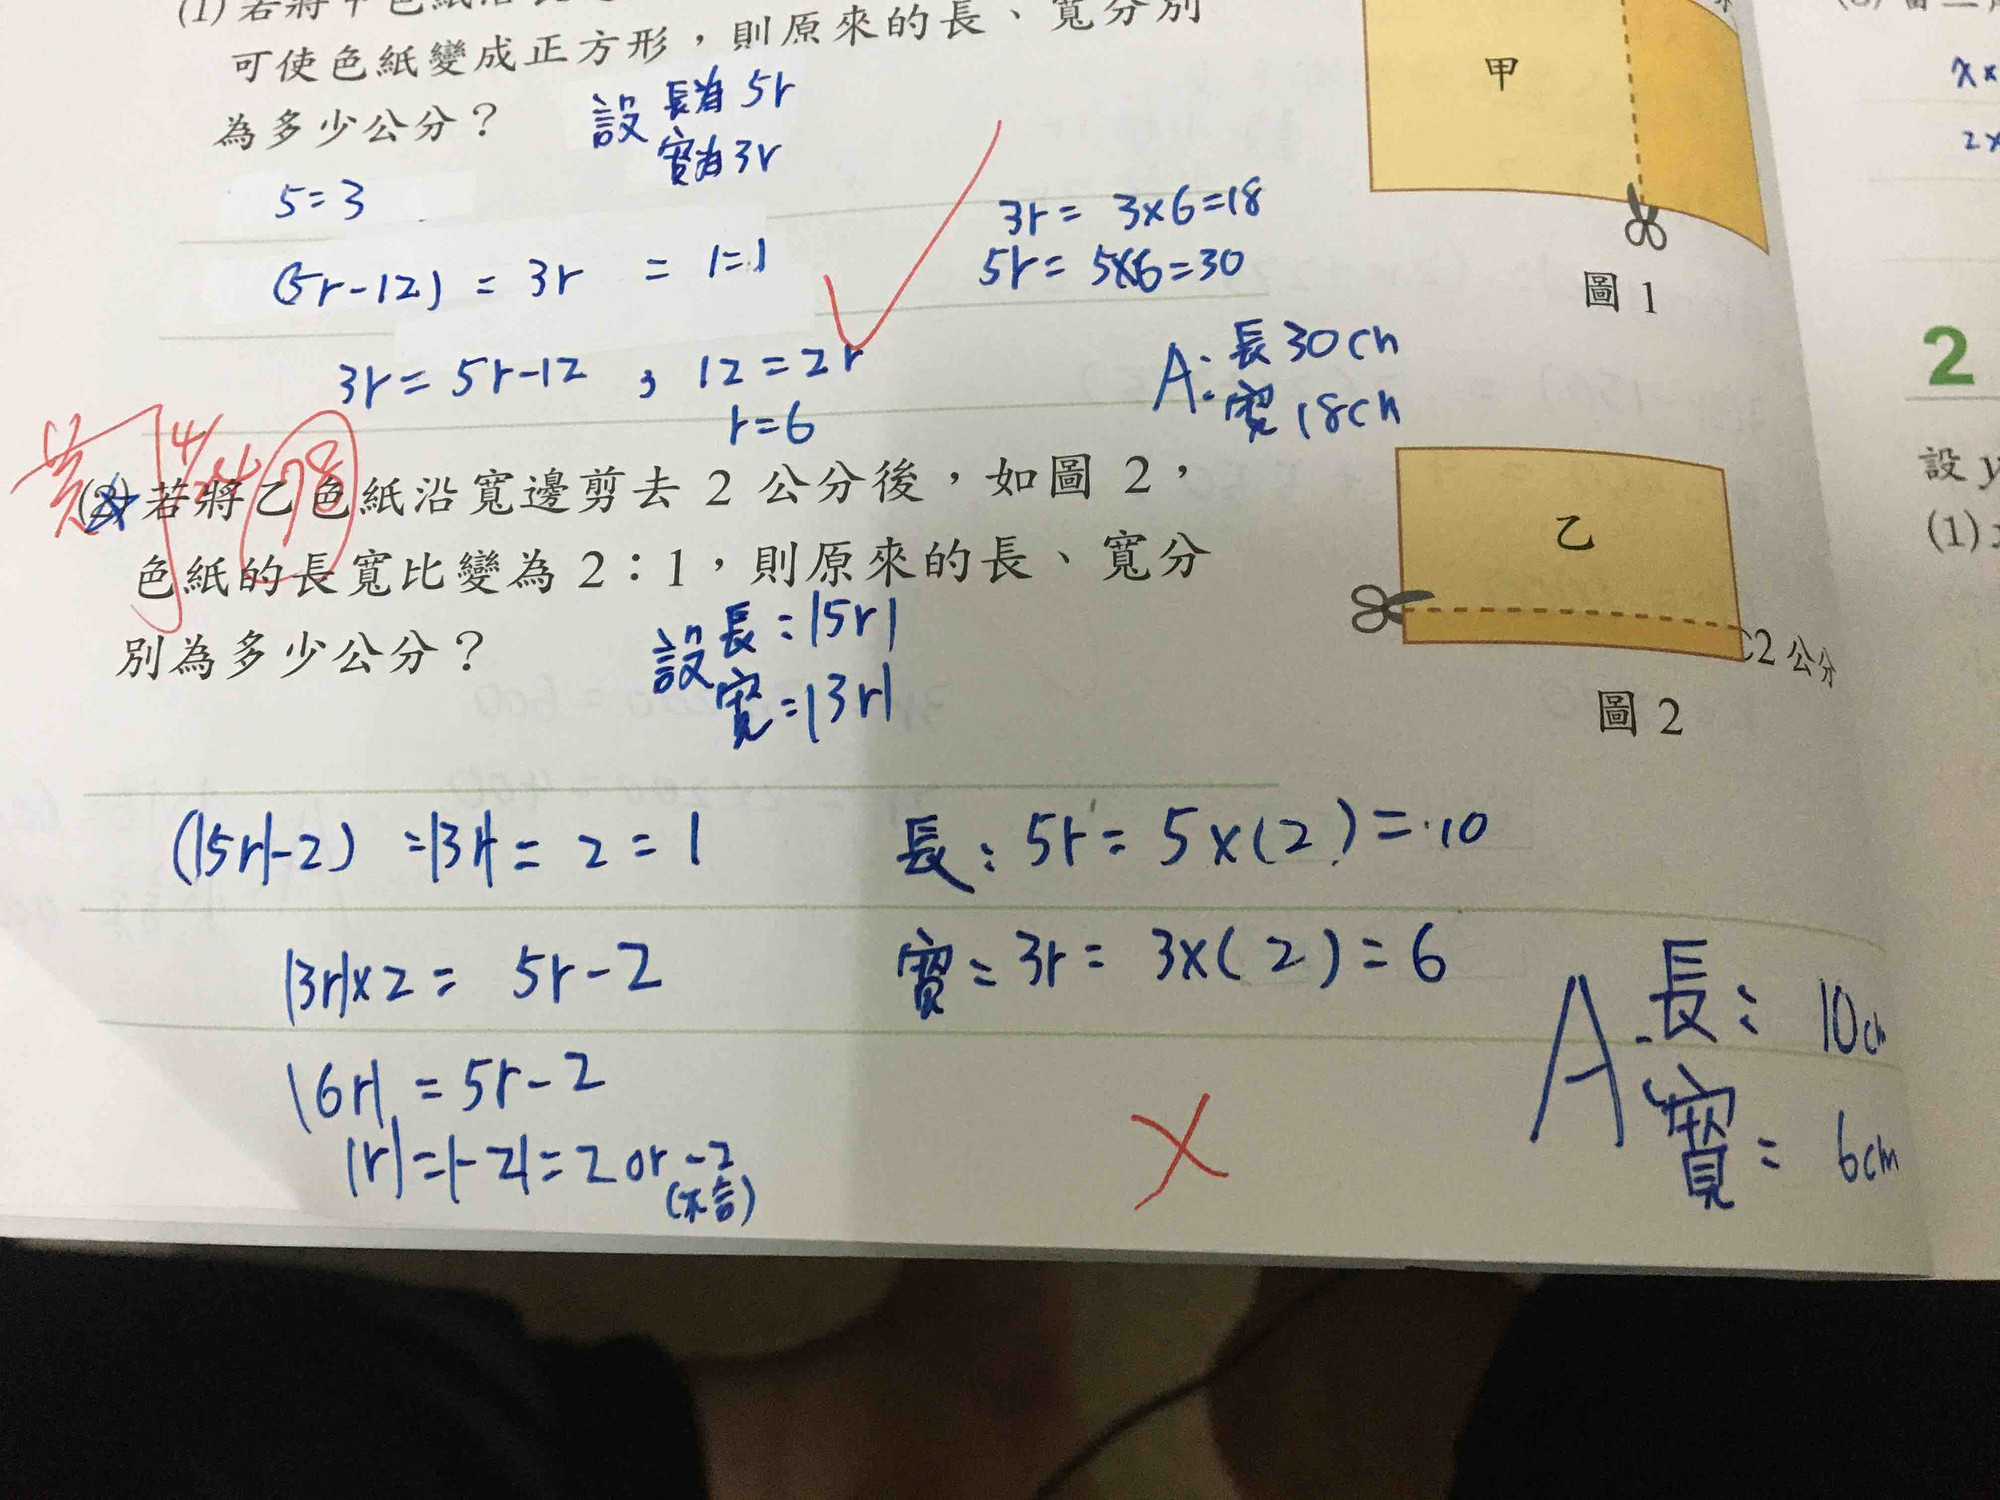 可使色紙變成正方形，則原來的長、寬分別
為多少公分？
設 長為 5r
寬為 3r
5=3
(5r-12) = 3r = 1=1
3r = 5r-12 , 12=2r
r=6
3r = 3×6=18
5r = 5×6=30
A: 長30cm
寬18cm
甲
圖 1
若將乙色紙沿寬邊剪去 2 公分後，如圖 2，
色紙的長寬比變為 2：1，則原來的長、寬分
別為多少公分？
設 長=|5r|
寬=|3r|
乙
2 公分
圖 2
(|5r|-2) =|3r| = 2 = 1
|3r|×2 = 5r-2
|6r| = 5r-2
|r|=|-2|=2 or -2
(不合)
長: 5r = 5×(2)=10
寬= 3r = 3×(2)=6
A: 長: 10cm
寬= 6cm
2
設 y
(1)